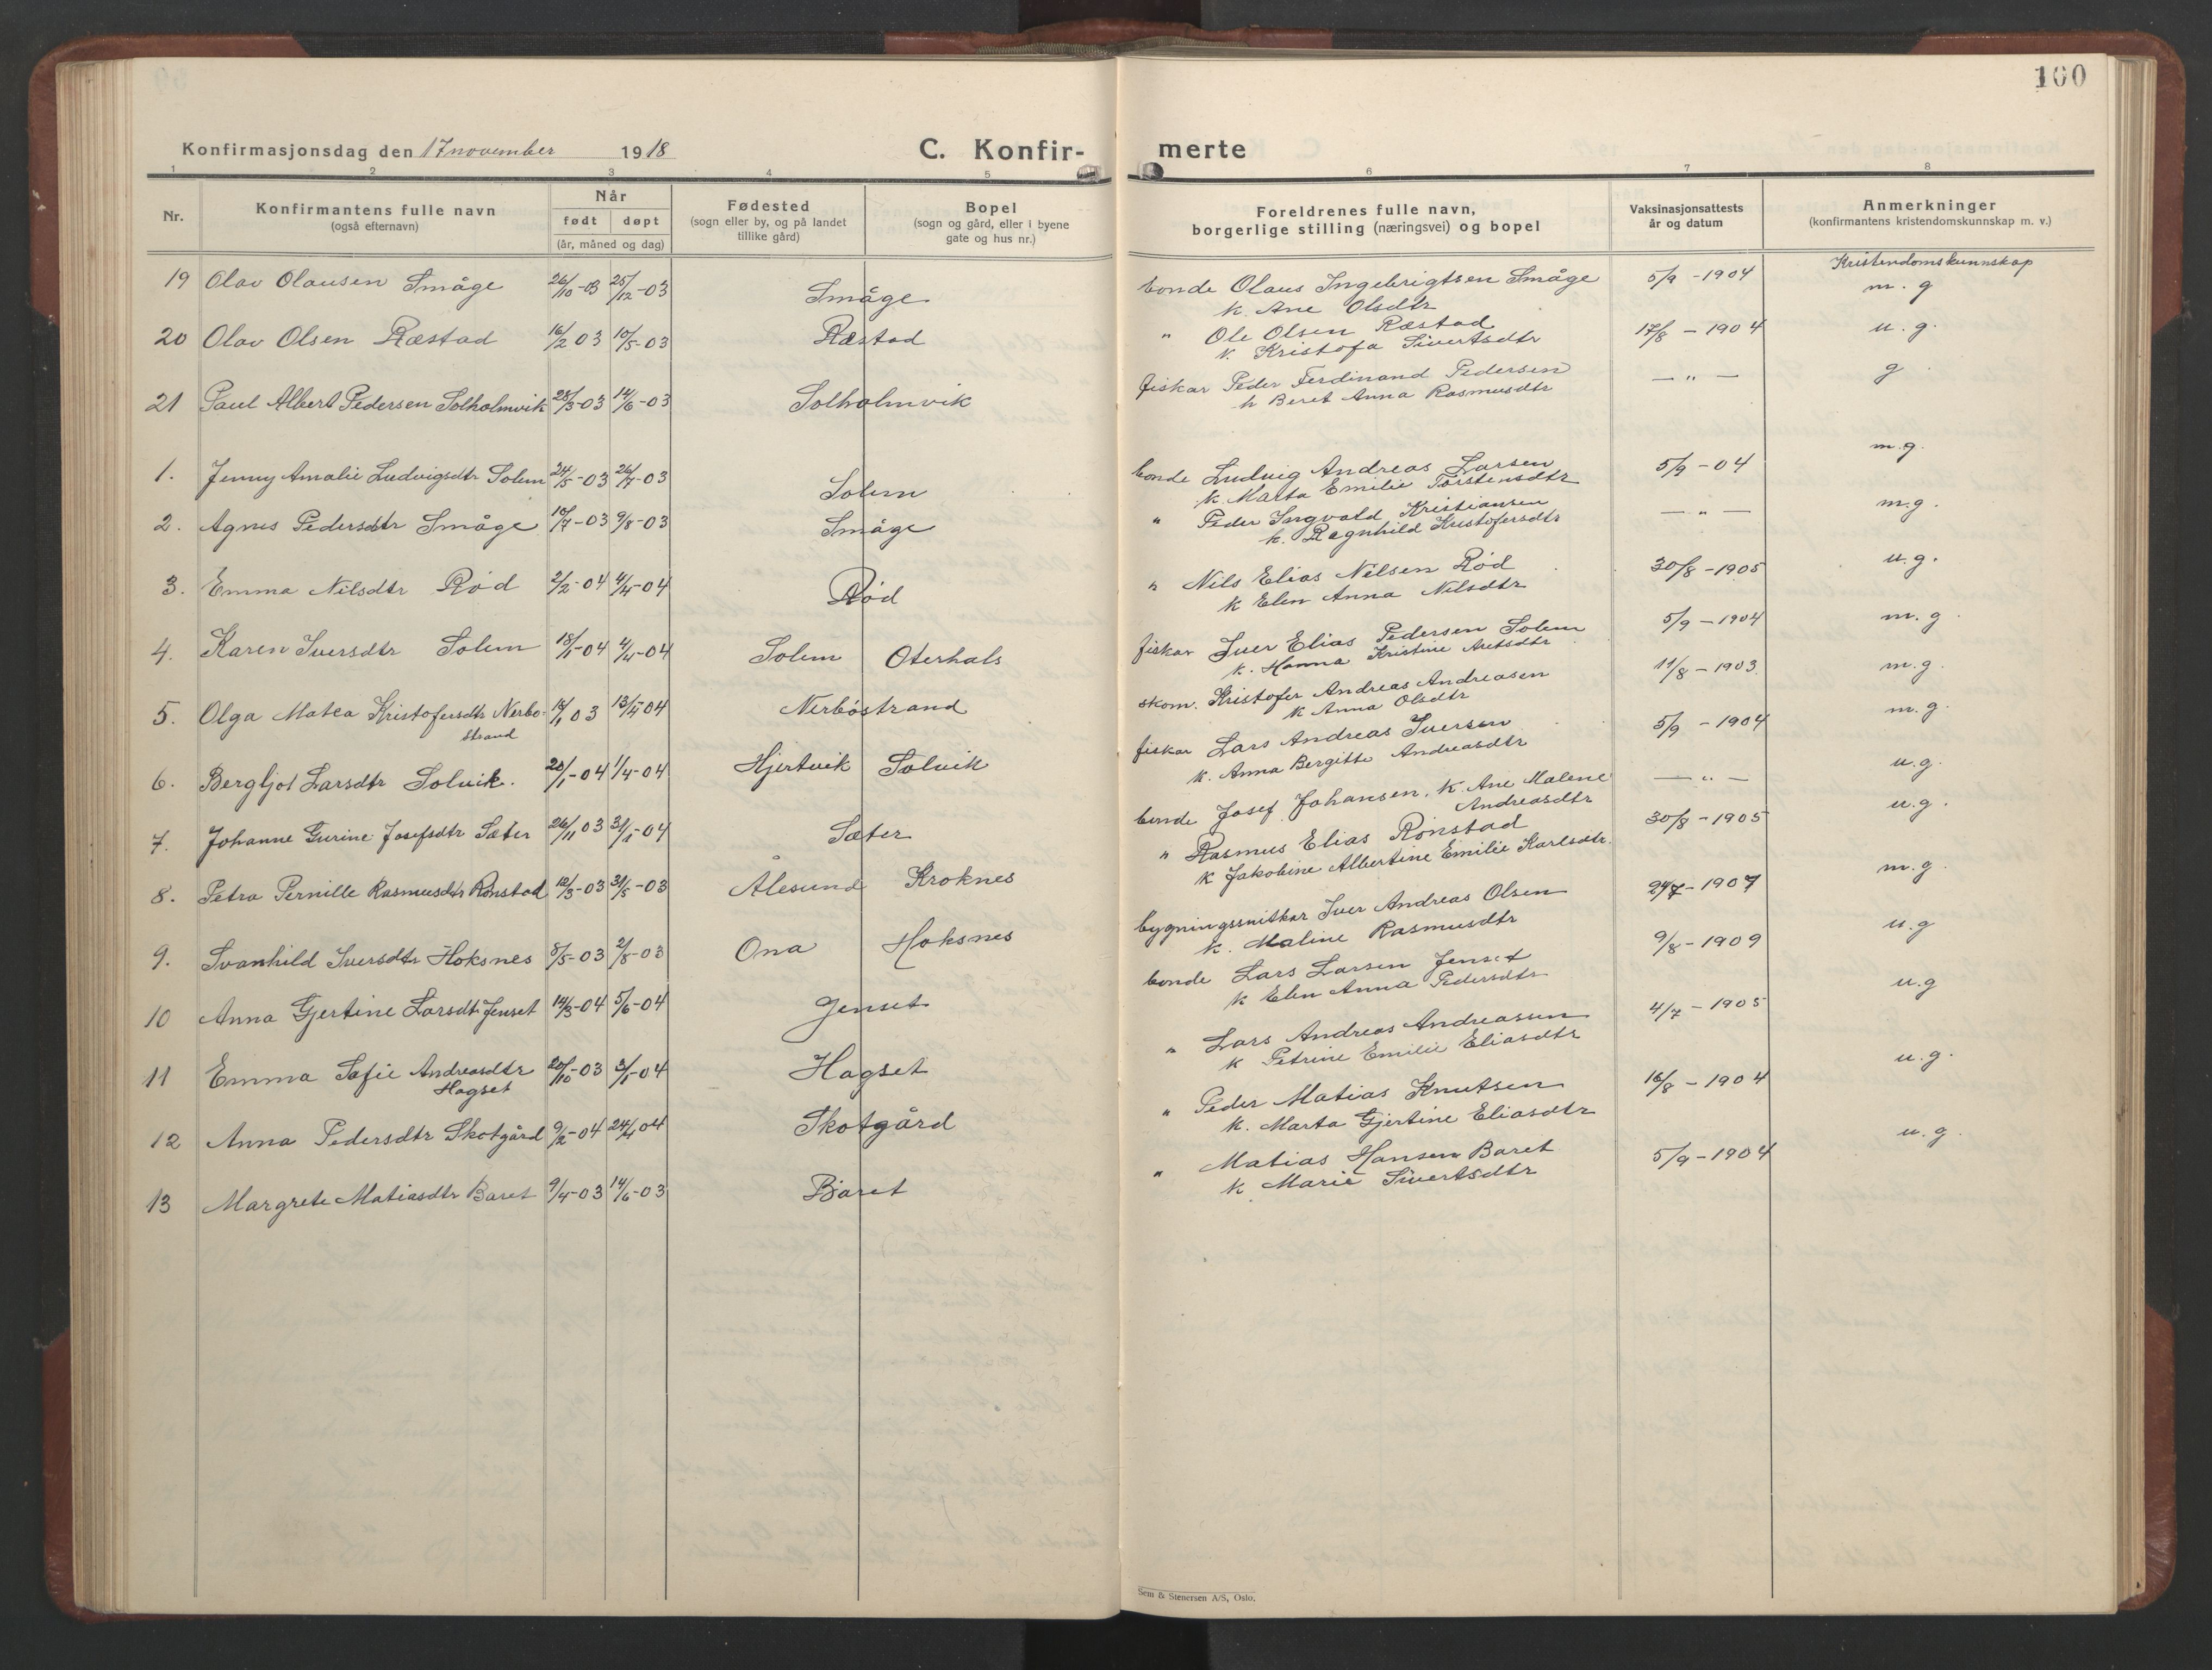 100
Konfirmasjonsdag den 17 november 1918
C. Konfir-
merte
1 2 3 4 5 6 7 8
Nr.
Konfirmantens fulle navn
(også efternavn)
Når
født døpt
(år, måned og dag)
Fødested
(sogn eller by, og på landet
tillike gård)
Bopel
(sogn og gård, eller i byene
gate og hus nr.)
Foreldrenes fulle navn,
borgerlige stilling (næringsvei) og bopel
Vaksinasjonsattests
år og datum
Anmerkninger
(konfirmantens kristendomskunnskap m. v.)
Kristendomskunnskap
19 Olav Olausen Småge 26/10-03 25/12-03 Småge bonde Olaus Ingebrigtsen Småge 5/9 - 1904 m. g
k. Ane Olsdtr
20 Olav Olsen Ræstad 16/2 03 10/5-03 Ræstad " Ole Olsen Ræstad 17/8 - 1904 u. g.
k. Kristofa Sivertsdtr
21 Paul Albert Pedersen Solholmvik 28/3-03 14/6-03 Solholmvik fiskar Peder Ferdinand Pedersen — " — g
k Beret Anna Rasmusdtr
1. Jenny Amalie Ludvigsdtr Solem 24/5-03 26/7-03 Solem bonde Ludvig Andreas Larsen 5/9 - 04 m.g.
k. Marta Emilie Torstensdtr
2. Agnes Pedersdtr Småge 10/7-03 9/8-03 Småge " Peder Ingvald Kristiansen — " — m.g.
k. Ragnhild Kristofersdtr
3. Emma Nilsdtr Rød 2/2-04 4/4-04 Rød " Nils Elias Nilsen Rød 30/8 - 1905 u.g.
k Elen Anna Nilsdtr
4. Karen Iversdtr Solem 18/1-04 4/4-04 Solem Oterhals fiskar Iver Elias Pedersen Solem 5/9 - 1904 m. g
k. Hanna Kristine Aretsdtr
5. Olga Matea Kristofersdtr Nerbø- 14/1 03 13/4 04 Nerbøstrand skom. Kristofer Andreas Andreasen 11/8 - 1903 m.g.
strand k Anna Olsdtr
6. Bergljot Larsdtr Solvik. 20/1-04 1/4-04 Hjertvik Solvik fiskar Lars Andreas Iversen 5/9 - 1904 m.g.
k. Anna Bergitte Andreasdtr
7. Johanne Gurine Josefsdtr Sæter 26/11 03 31/1-04 Sæter bonde Josef Johansen, k. Ane Malene — " — u.g.
Andreasdtr
8. Petra Pernille Rasmusdtr Rønstad 12/3-03 31/5-03 Ålesund Kroknes " Rasmus Elias Rønstad 30/8 - 1905 u.g.
k Jakobine Albertine Emilie Karlsdtr.
9. Svanhild Iversdtr Hoksnes 8/5-03 2/8-03 Ona Hoksnes bygningssnitkar Iver Andreas Olsen 24/7 - 1907 m.g.
k. Maline Rasmusdtr
10 Anna Gjertine Larsdtr Jenset 14/3-04 5/6-04 Jenset bonde Lars Larsen Jenset 9/8 - 1909 u.g
k Elen Anna Pedersdtr
11 Emma Sofie Andreasdtr 20/10-03 3/1-04 Hagset " Lars Andreas Andreassen 4/7 - 1905 u.g
Hagset k Petrine Emilie Eliasdtr
12 Anna Pedersdtr Skotgård 9/2-04 24/4 04 Skotgård " Peder Matias Knutsen 16/8 - 1904 u.g.
k. Marta Gjertine Eliasdtr
13 Margrete Matiasdtr Baret 9/4-03 14/6-03 Baret " Matias Hansen Baret 5/9 - 1904 u.g.
k Marie Sivertsdtr
Sem & Stenersen A/S, Oslo.